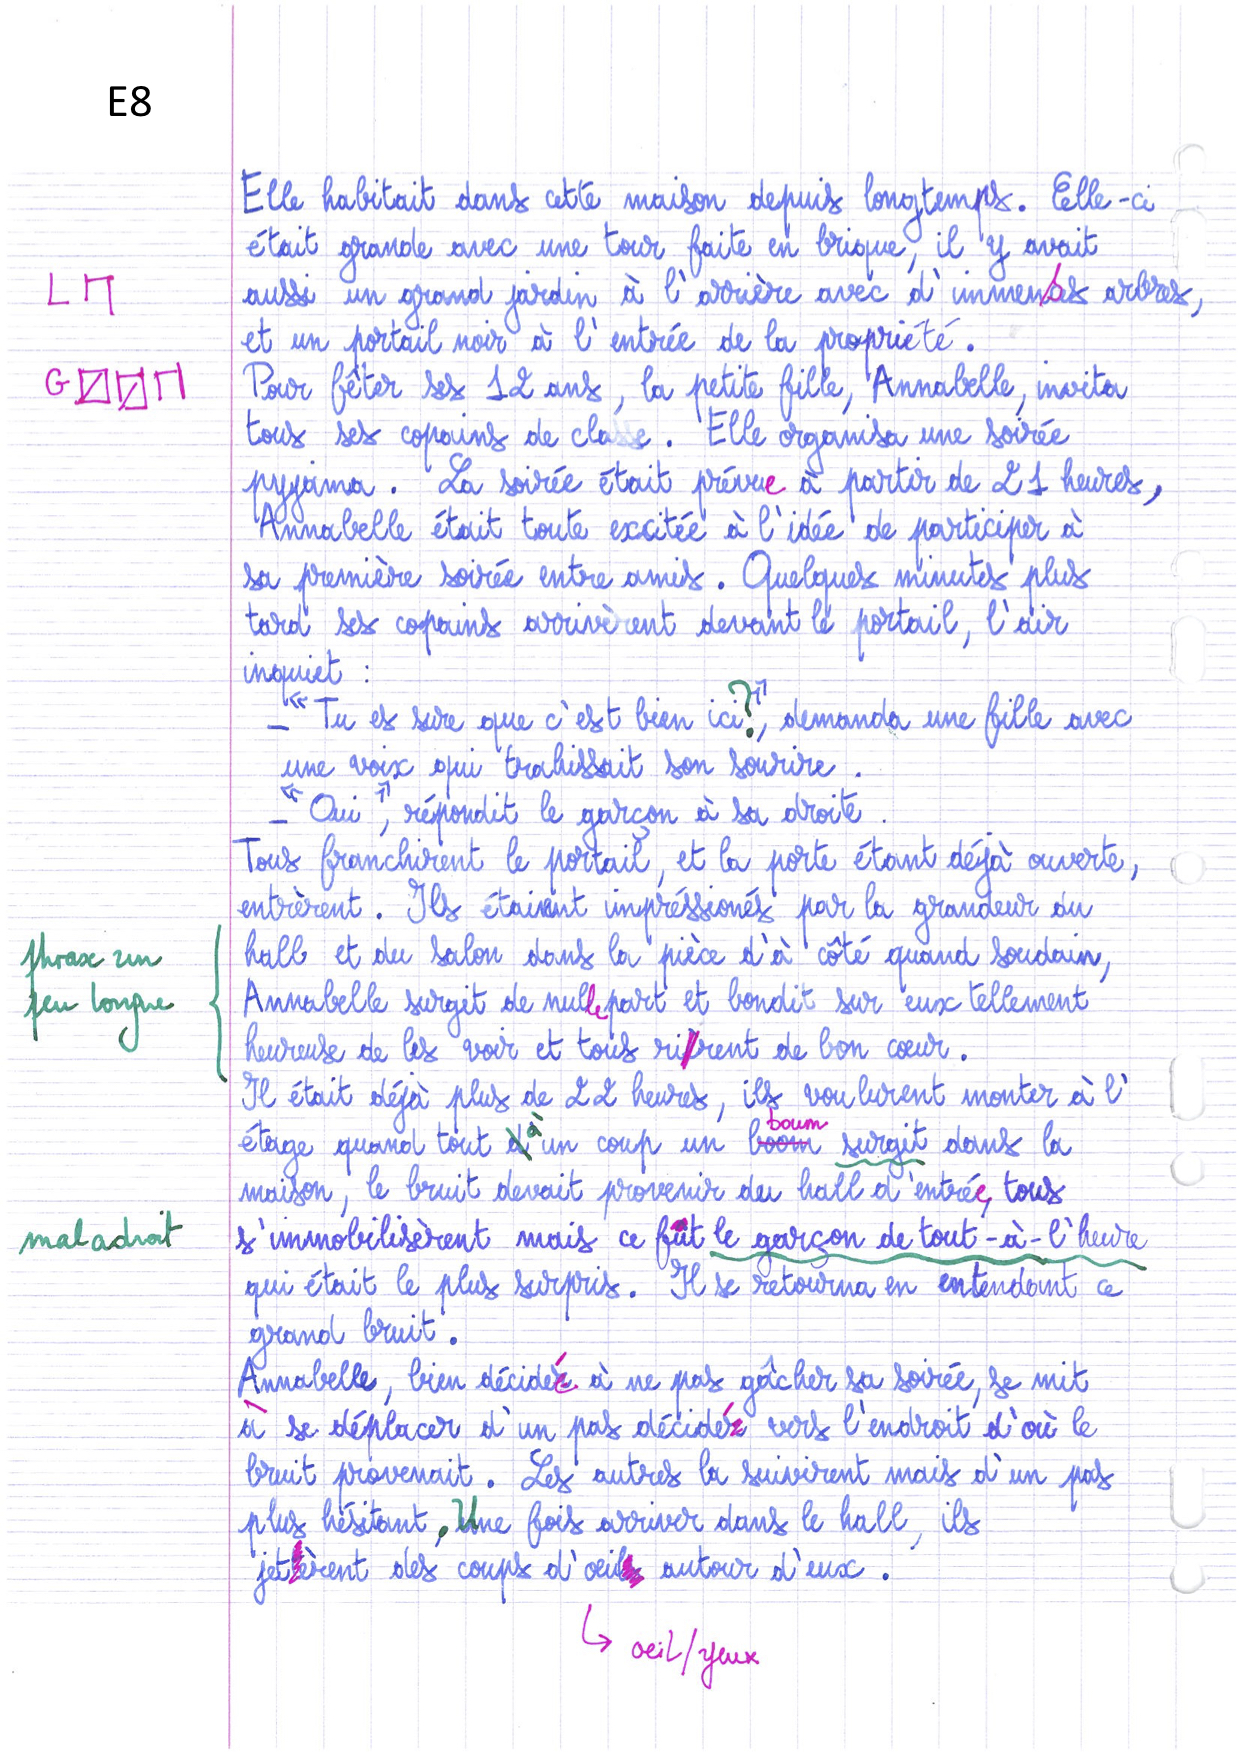 E8
Elle habitait dans cette maison depuis longtemps. Elle-ci
était grande avec une tour faite en brique, il y avait
L Π
aussi un grand jardin à l'arrière avec d'immenses arbres,
et un portail noir à l'entrée de la propriété.
G
Pour fêter ses 12 ans, la petite fille, Annabelle, invita
tous ses copains de classe. Elle organisa une soirée
pyjama. La soirée était prévue à partir de 21 heures,
Annabelle était toute excitée à l'idée de participer à
sa première soirée entre amis. Quelques minutes plus
tard ses copains arrivèrent devant le portail, l'air
inquiet :
_ « Tu es sure que c'est bien ici ? », demanda une fille avec
une voix qui trahissait son sourire.
_ « Oui », répondit le garçon à sa droite.
Tous franchirent le portail, et la porte étant déjà ouverte,
entrèrent. Ils étaient impréssionés par la grandeur du
phrase un
hall et du salon dans la pièce d'à côté quand soudain,
peu longue
Annabelle surgit de nulle part et bondit sur eux tellement
heureuse de les voir et tous rirent de bon cœur.
Il était déjà plus de 22 heures, ils voulurent monter à l'
boum
étage quand tout à un coup un boom surgit dans la
maison, le bruit devait provenir du hall d'entrée, tous
maladroit
s'immobilisèrent mais ce fut le garçon de tout-à-l'heure
qui était le plus surpris. Il se retourna en entendant ce
grand bruit.
Annabelle, bien décidée à ne pas gâcher sa soirée, se mit
à se déplacer d'un pas décidé vers l'endroit d'où le
bruit provenait. Les autres la suivirent mais d'un pas
plus hésitant. Une fois arriver dans le hall, ils
jetèrent des coups d'oeil autour d'eux.
oeil/yeux